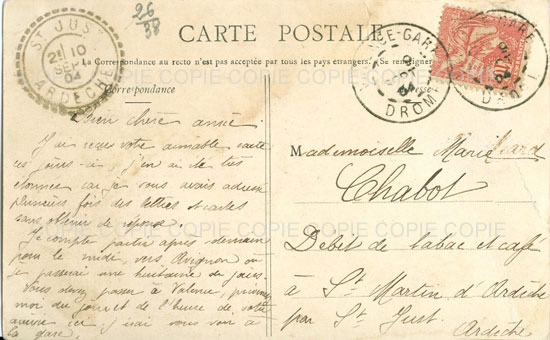 26
38
CARTE POSTALE
La Correspondance au recto n'est pas acceptée par tous les pays étrangers. (Se renseigner
Correspondance
ST JUST
2E 10
SEPT
04
ARDECHE
CE-GARE
DROME
GARE
COPIE COPIE COPIE COPIE COPIE
Bien chère amie!
J'ai reçu votre aimable carte
ces jours-ci, j'en ai été très
étonnée car je vous avais adressé
plusieurs fois des lettres et cartes
sans obtenir de réponse.
Je compte partir après demain
pour le midi, vers Avignon où
je passerai une huitaine de jours.
Vous devez passer à Valence,
moi du jour et de l'heure de votre
arrivée et j'irai vous voir à
la gare.
Mademoiselle Marie
Chabot
Débit de tabac et café
à St Martin d'Ardèche
par St Just
Ardèche